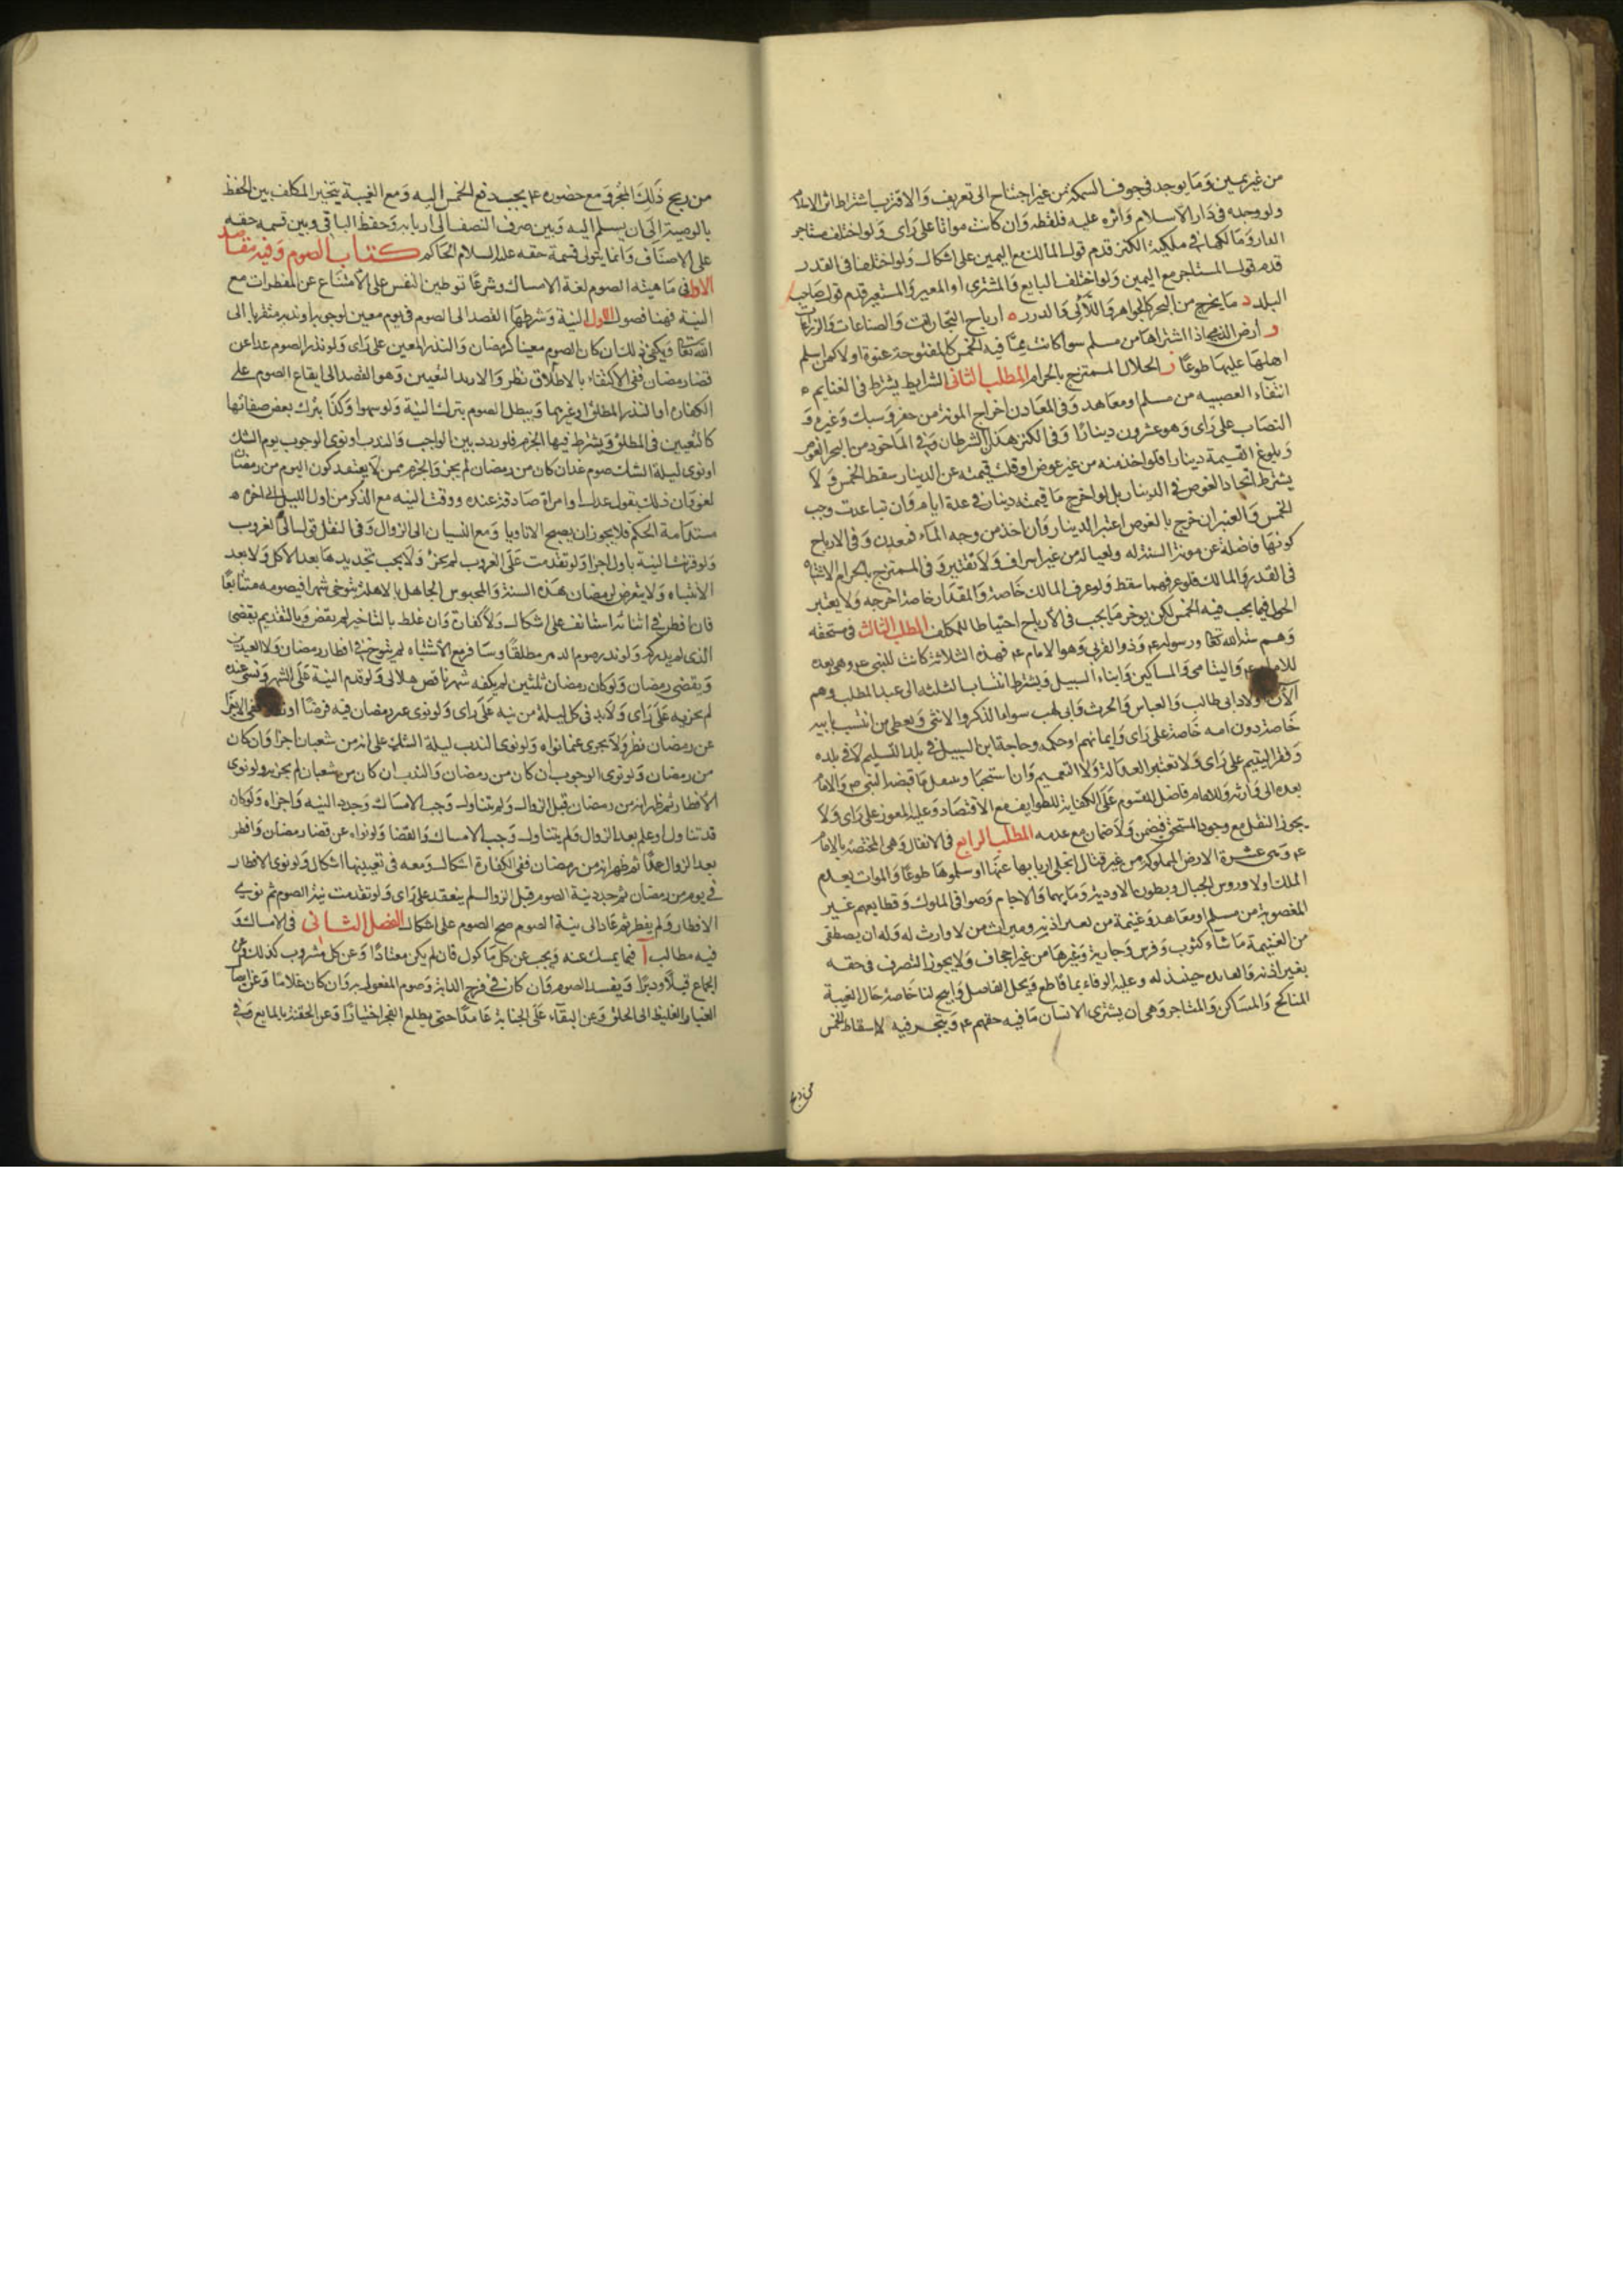 من غير يمين وما يوجد في جوف السمكة من غير احتياج الى تعريف والاقرب اشتراط اثر الاسلام
ولو وجده في دار الاسلام واثره عليه فلقطة وان كانت مواتا على راى ولو اختلف مستاجر
الدار ومالكها في ملكية الكنز قدم قول المالك مع اليمين على اشكال ولو اختلفا في القدر
قدم قول المستاجر مع اليمين ولو اختلف البايع والمشترى او المعير والمستعير قدم قول صاحب
اليد د ما يخرج من البحر كالجواهر واللآلئ والدرر ه ارباح التجارات والصناعات والزراعات
و ارض الذمى اذا اشتراها من مسلم سوا كانت مما فيه الخمس كالمفتوحة عنوة او لا كمن اسلم
اهلها عليها طوعا ز الحلال الممتزج بالحرام المطلب الثانى الشرايط يشترط في الغنايم
انتفاء الغصبيه من مسلم او معاهد وفي المعادن اخراج المونة من حفر وسبك وغيره و
النصاب على راى وهو عشرون دينارا وفي الكنز هذان الشرطان وفي الماخوذ من البحر الغوص
وبلوغ القيمة دينارا فلو اخذ منه من غير غوص او قلت قيمته عن الدينار سقط الخمس ولا
يشترط اتحاد الغوص في الدينار بل لو اخرج ما قيمته دينار في عدة ايام وان تباعدت وجب
الخمس والعنبر ان خرج بالغوص اعتبر الدينار وان اخذ من وجه الماء فمعدن وفي الارباح
كونها فاضلة عن مونة السنة له ولعياله من غير اسراف ولا تقتير وفي الممتزج بالحرام الاشتباه
في القدر والمالك فلو عرفهما سقط ولو عرف المالك خاصة والمقدار خاصة اخرجه ولا يعتبر
الحول فيما يجب فيه الخمس لكن يوخر ما يجب في الارباح احتياطا للمكلف المطلب الثالث في مستحقه
وهم ستة الله تعا ورسوله ع وذو القربى وهو الامام ع فهذه الثلاثة كانت للنبى ع وهى بعده
للامام ع واليتامى والمساكين وابناء السبيل ويشترط انتساب الثلثه الى عبد المطلب وهم
الآن اولاد ابى طالب والعباس والحرث وابى لهب سوا ما الذكر والانثى ويعطى من انتسب بابيه
خاصة دون امه خاصة على راى وايمانهم او حكمه وحاجة ابن السبيل في بلد التسليم لا في بلده
وفقر اليتيم على راى ولا تعتبر العدالة ولا التعميم وان استحبا وينتقل ما قبضه النبى ص والامام
بعده الى وارثه وللامام فاضل المقسوم على الكفاية للطوايف مع الاقتصاد وعليه المعوز على راى ولا
يجوز النقل مع وجود المستحق فيضمن ولا ضمان مع عدمه المطلب الرابع في الانفال وهى المختصة بالامام
ع وهى عشرة الارض المملوكة من غير قتال انجلى اربابها عنها او سلموها طوعا والموات بعدم
الملك او لا وروس الجبال وبطون الاودية وما بهما والاجام وصوافى الملوك وقطايعهم غير
المغصوبة من مسلم او معاهد وغنيمة من بغير اذنه وميراث من لا وارث له وله ان يصطفى
من الغنيمة ما شاء كثوب وفرس وجارية وغيرها من غير اجحاف ولا يجوز التصرف في حقه
بغير اذنه والفايده حينئذ له وعليه الوفاء بما قاطع ويحل الفاضل وابيح لنا خاصة حال الغيبة
المناكح والمساكن والمتاجر وهى ان يشترى الانسان ما فيه حقهم ع ويتجر فيه لا اسقاط الخمس
من ربح
من ربح ذلك المتجر ومع حضوره ع يجب دفع الخمس اليه ومع الغيبة يتخير المكلف بين الحفظ
بالوصية الى ان يسلم اليه وبين صرف النصف الى اربابه وحفظ الباقى وبين قسمه حقه
على الاصناف وانما يتولى قسمة حقه عليه السلام الحاكم كتاب الصوم وفيه مقاصد
الاول في ماهيته الصوم لغة الامساك وشرعا توطين النفس على الامتناع عن المفطرات مع
النية فهنا فصول الاول النية وشرطها القصد الى الصوم في يوم معين لوجوبه او ندبه متقربا الى
الله تعا ويكفى ذلك ان كان الصوم معينا كرمضان والنذر المعين على راى ولو نذر الصوم غدا عن
قضا رمضان ففى الاكتفاء بالاطلاق نظر والا بد التعيين وهو القصد الى ايقاع الصوم على
الكفارة او النذر المطلق او غيرهما ويبطل الصوم بترك النية ولو سهوا وكذا بترك بعض صفاتها
كالتعيين في المطلق ويشترط فيها الجزم فلو ردد بين الواجب والندب او نوى الوجوب يوم الشك
او نوى ليلة الشك صوم غد ان كان من رمضان لم يجز والجزم ممن لا يعتقد كون اليوم من رمضان
لغو وان ذلك بقول عدل او امراة صادقة عنده ووقت النيه مع الذكر من اول الليل الى اخره
مستدامة الحكم فلا يجوز ان يصبح الا ناويا ومع النسيان الى الزوال وفي النفل قولا الى الغروب
ولو قرنت النية باول اجزا ولو تقدمت على الغروب لم يجز ولا يجب تجديدها بعد الاكل ولا بعد
الانتباه ولا يتعرض لرمضان بهذه السنة والمحبوس الجاهل بالاهلة يتوخى شهرا فيصومه متتابعا
فان افطر في اثنائه استانف على اشكال ولا كفارة وان غلط بالتاخير لم يقض وبالتقديم يقضى
الذى لم يدركه ولو نذر صوم الدهر مطلقا وسافر مع الاشتباه لم يتوخ في افطار رمضان ولا العيدين
ويقضى رمضان ولو كان رمضان ثلثين لم يكفه شهر ناقص هلالى ولو قدم النية على الشهر ونسى عنده
لم يجزيه على راى ولا بد في كل ليلة من نيه على راى ولو نوى غير رمضان فيه فرضا او نفلا ففى الاجزا
عن رمضان نظر ولا يجرى عما نواه ولو نوى الندب ليلة الشك على انه من شعبان اجزا وان كان
من رمضان ولو نوى الوجوب ان كان من رمضان والندب ان كان من شعبان لم يجز ولو نوى
الافطار ثم ظهر انه من رمضان قبل الزوال ولم يتناول وجب الامساك وجدد النيه واجزاه ولو كان
قد تناول او علم بعد الزوال ولم يتناول وجب الامساك والقضا ولو نواه عن قضا رمضان وافطر
بعد الزوال عمدا ثم ظهر انه من رمضان ففى الكفارة اشكال ومعه في تعيينها اشكال ولو نوى الافطار
في يوم من رمضان ثم جدد نية الصوم قبل الزوال لم ينعقد على راى ولو تقدمت نية الصوم ثم نوى
الافطار ولم يفطر ثم عاد الى نية الصوم صح الصوم على اشكال الفصل الثانى في الامساك و
فيه مطالب ا فيما يمسك عنه ويجب عن كل ماكول فان لم يكن معتادا وعن كل مشروب كذلك وعن
الجماع قبلا ودبرا ويفسد الصوم وان كان في فرج الدابة وصوم المفعول به وان كان غلاما وعن ايصال
الغبار الغليظ الى الحلق وعن البقاء على الجنابة عامدا حتى يطلع الفجر اختيارا وعن الحقنة بالمايع وفي